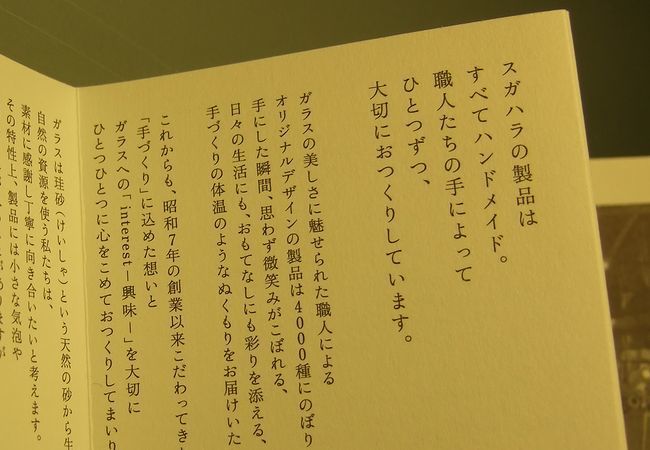 スガハラの製品は
すべてハンドメイド。
職人たちの手によって
ひとつずつ、
大切におつくりしています。
ガラスの美しさに魅せられた職人による
オリジナルデザインの製品は4000種にのぼり
手にした瞬間、思わず微笑みがこぼれる、
日々の生活にも、おもてなしにも彩りを添える、
手づくりの体温のようなぬくもりをお届けいた
これからも、昭和7年の創業以来こだわってき
「手づくり」に込めた想いと
ガラスへの「interest－興味－」を大切に
ひとつひとつに心をこめておつくりしてまいり
ガラスは珪砂（けいしゃ）という天然の砂から生
自然の資源を使う私たちは、
素材に感謝し丁寧に向き合いたいと考えます。
その特性上、製品には小さな気泡や